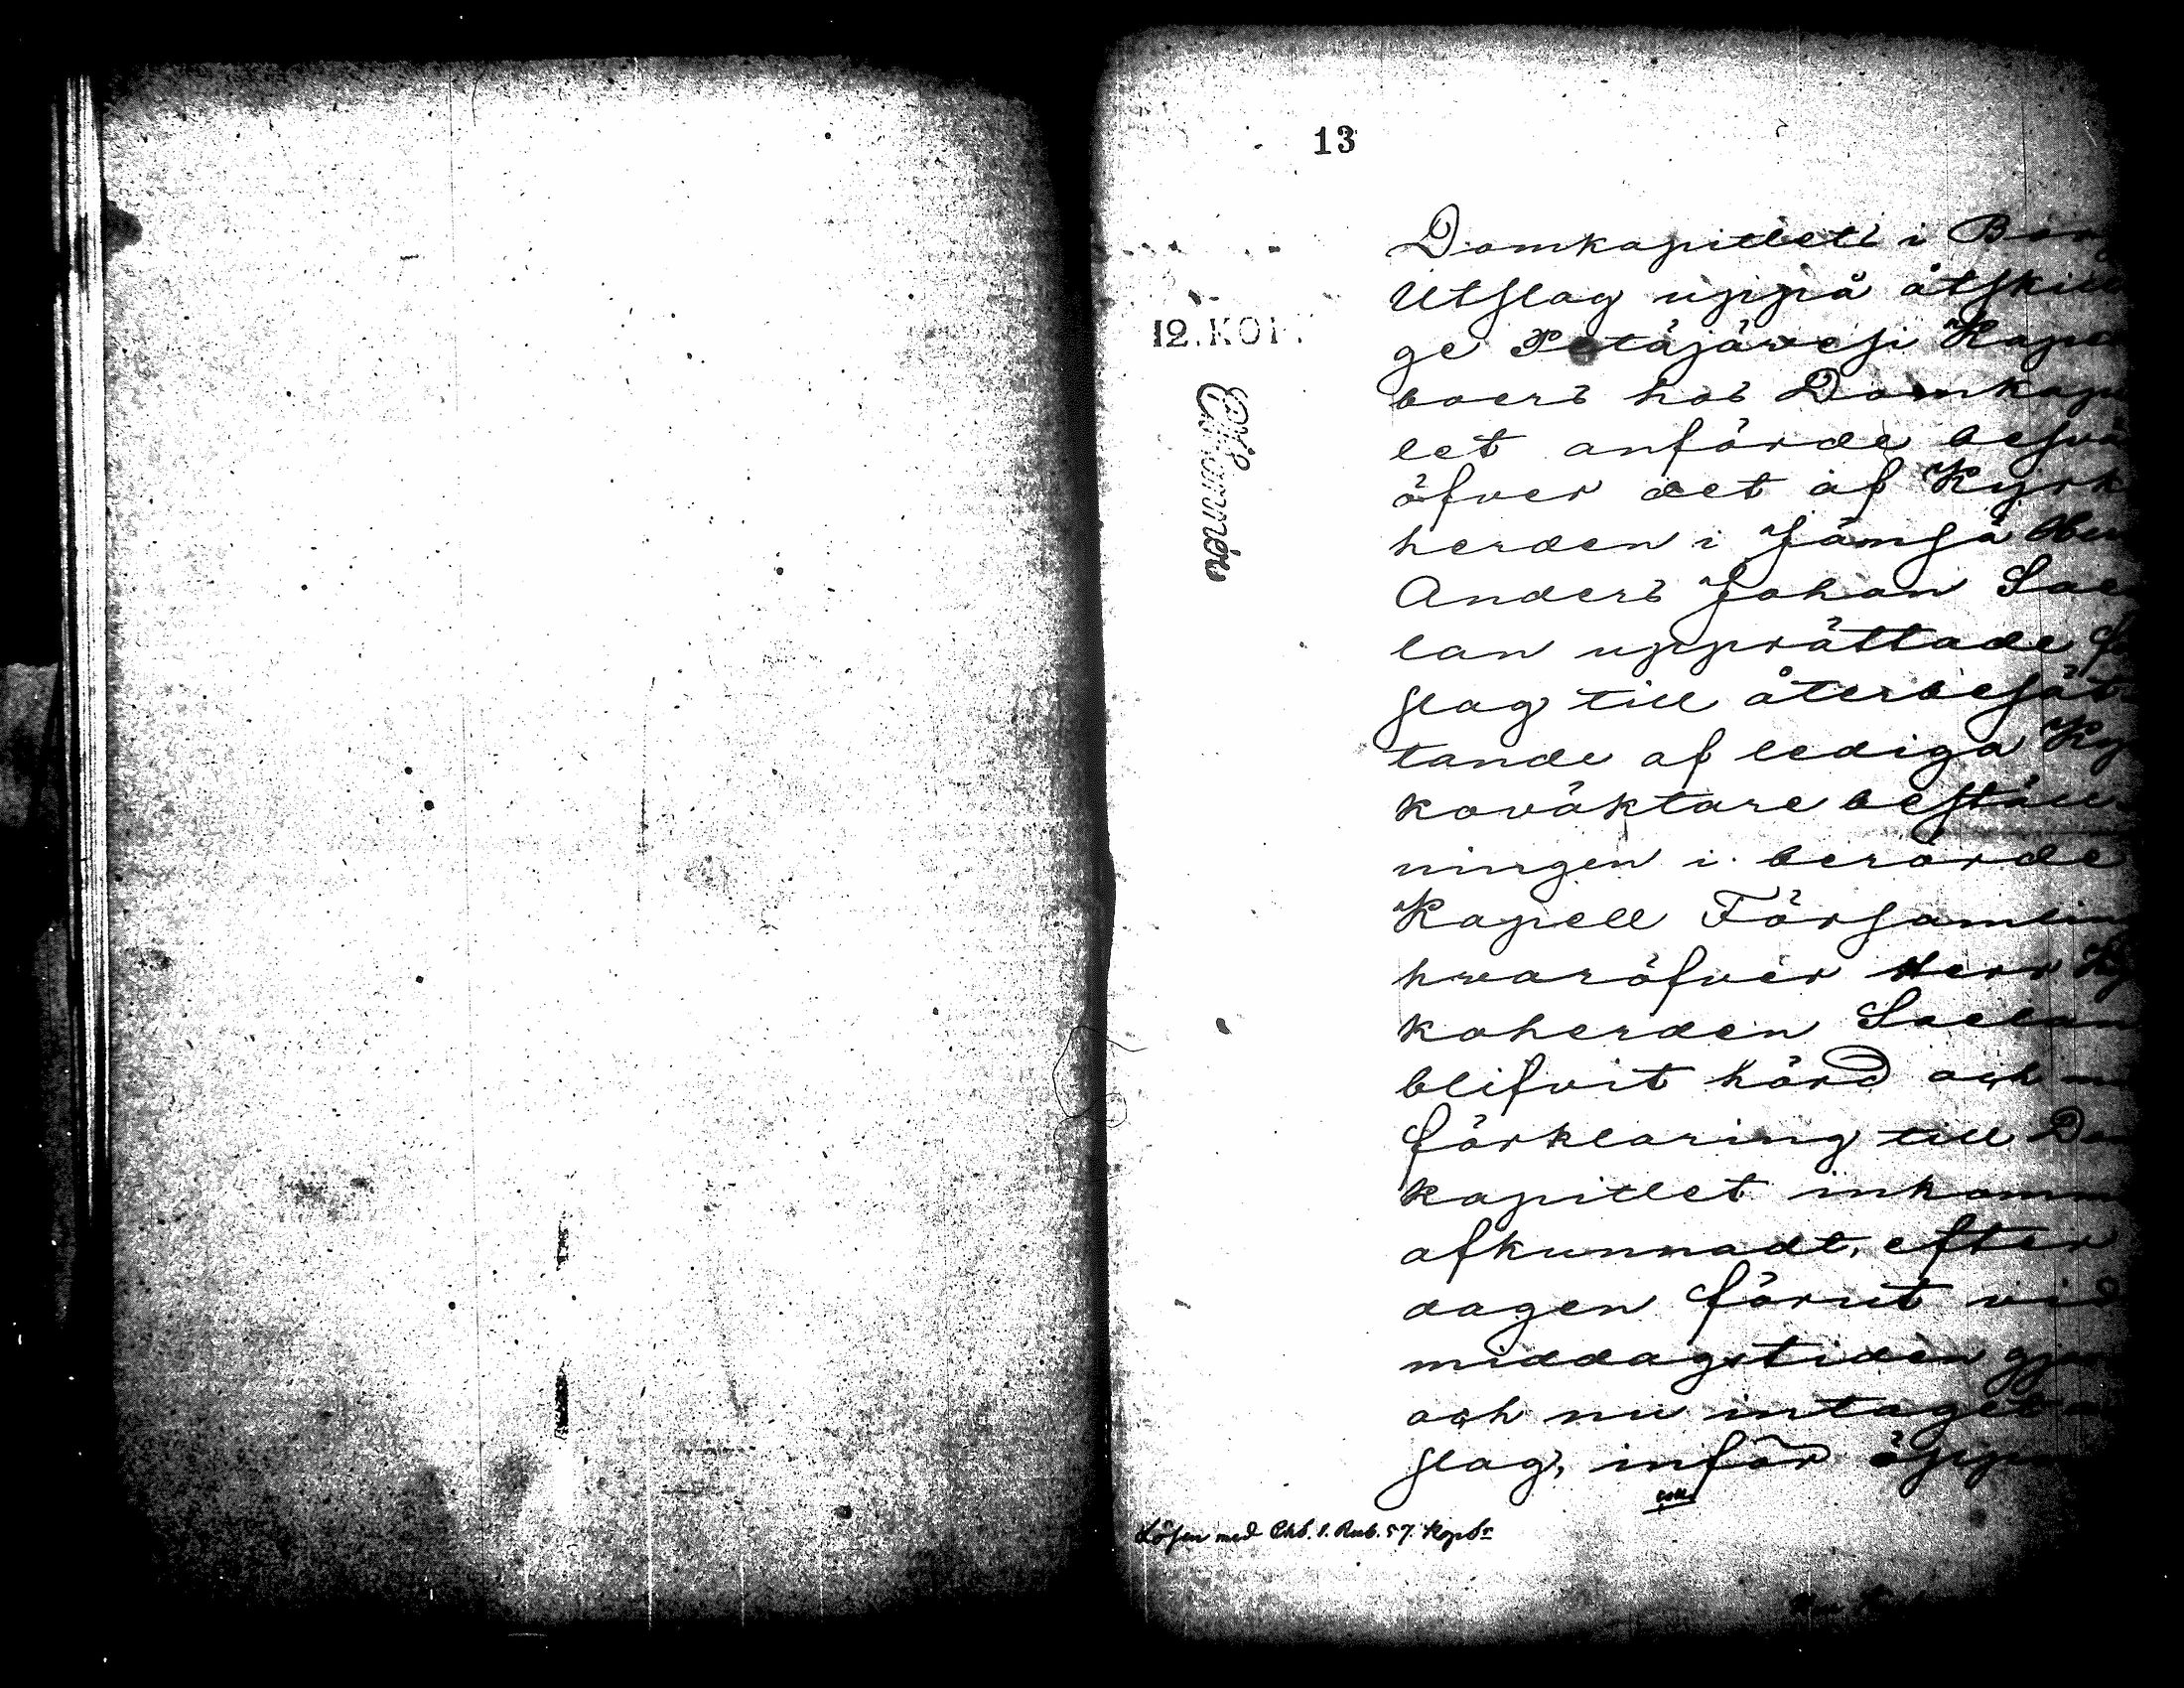 13
12. KOP.
Domkapitlets i Borg
Utslag uppå åtskilli
ge Petäjävesi Kapell
boers hos Domkapit
let anförde besvä
öfver det af Kyrk
herden i Jämsä
Anders Johan Sae
lan upprättade
slag till återbesät
tande af lediga Kyr
koväktare beställ
ningen i berörde
Kapell Församling
hvaröfver Herr Kyr
koherden Saelan
blifvit hörd och
förklaring till Dom
kapitlet inkomm
afkunnadt, efter
dagen förut vid
middagstiden gjor
och nu intaget
slag, inför öppn
Lösen med Chs. 1. Rub. 57. Kops